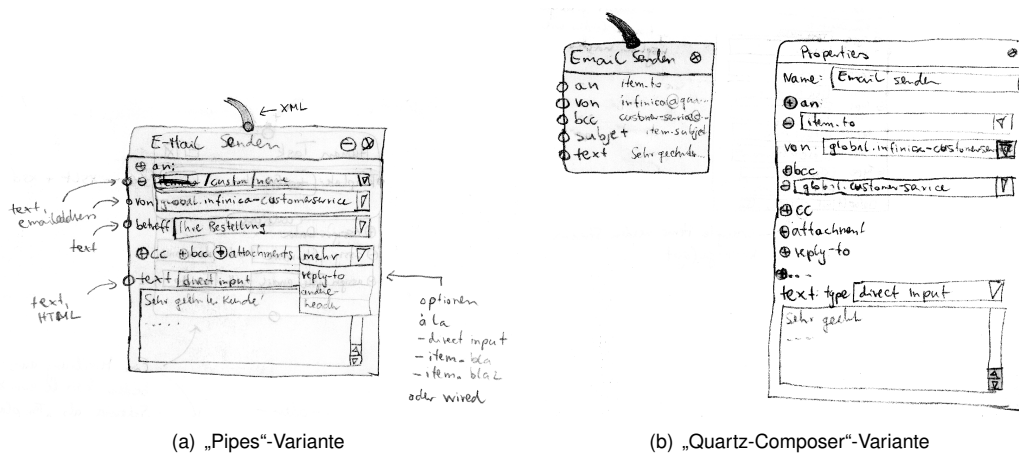 XML
E-Mail Senden
an:
/custom/name
von global.infinica-customerservice
betreff Ihre Bestellung
cc bcc attachments mehr
text direct input
reply-to
andere
header
Sehr geehrter Kunde!
.....
text,
emailaddress
text
text,
HTML
optionen
à la
- direct input
- item.bla
- item.bla2
oder wired
(a) „Pipes“-Variante
Email Senden
an item.to
von infinica@
bcc customer-service@...
subjet item.subject
text Sehr geehrter...
Properties
Name: Email senden
an:
item.to
von: global.infinica-customerser
bcc
global.customer-service
cc
attachment
reply-to
....
text: type direct input
Sehr geeh
....
(b) „Quartz-Composer“-Variante